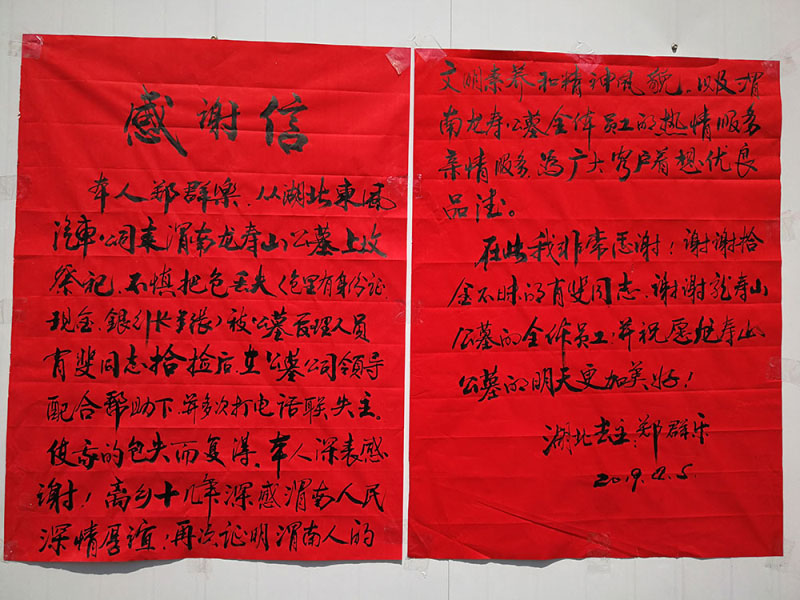 感谢信
本人郑群乐，从湖北東风
汽車公司来渭南龙寿山公墓上坟
祭祀，不慎把包丢失（包里有身份证
现金、銀行卡等）被公墓管理人员
有斐同志拾捡后，在公墓公司領导
配合帮助下，并多次打电话联失主，
使我的包失而复得，本人深表感
谢！离乡十几年深感渭南人民
深情厚谊，再次证明渭南人的
文明素养和精神风貌，以及渭
南龙寿公墓全体员工的热情服务
亲情服务为广大客户着想优良
品德。
在此我非常感谢！谢谢拾
金不昧的有斐同志，谢谢龙寿山
公墓的全体员工，并祝愿龙寿山
公墓的明天更加美好！
湖北失主郑群乐
2019.4.5.